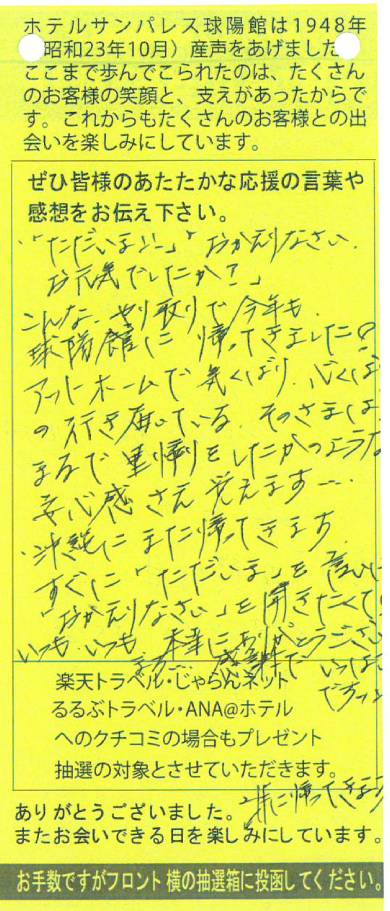 ホテルサンパレス球陽館は1948年
昭和23年10月）産声をあげました
ここまで歩んでこられたのは、たくさん
のお客様の笑顔と、支えがあったからで
す。これからもたくさんのお客様との出
会いを楽しみにしています。
ぜひ皆様のあたたかな応援の言葉や
感想をお伝え下さい。
「ただいま〜」「おかえりなさい、
お元気でしたか？」
こんな、やり取りで今年も、
球陽館に帰ってきました♡
アットホームで気くばり、心くば
の行き届いている、そのさまは、
まるで里帰りをしたかのような
安心感さえ覚えます…
沖縄にまた帰ってきます
すぐに「ただいま」を言いに
「おかえりなさい」を聞きたくて
いつも、いつも、本当にありがとうござい
ます… 感謝で いっぱい
です
楽天トラベル・じゃらんネット
るるぶトラベル・ANA@ホテル
へのクチコミの場合もプレゼント
抽選の対象とさせていただきます。
に帰ってきます
ありがとうございました。
またお会いできる日を楽しみにしています。
お手数ですがフロント横の抽選箱に投函してください。